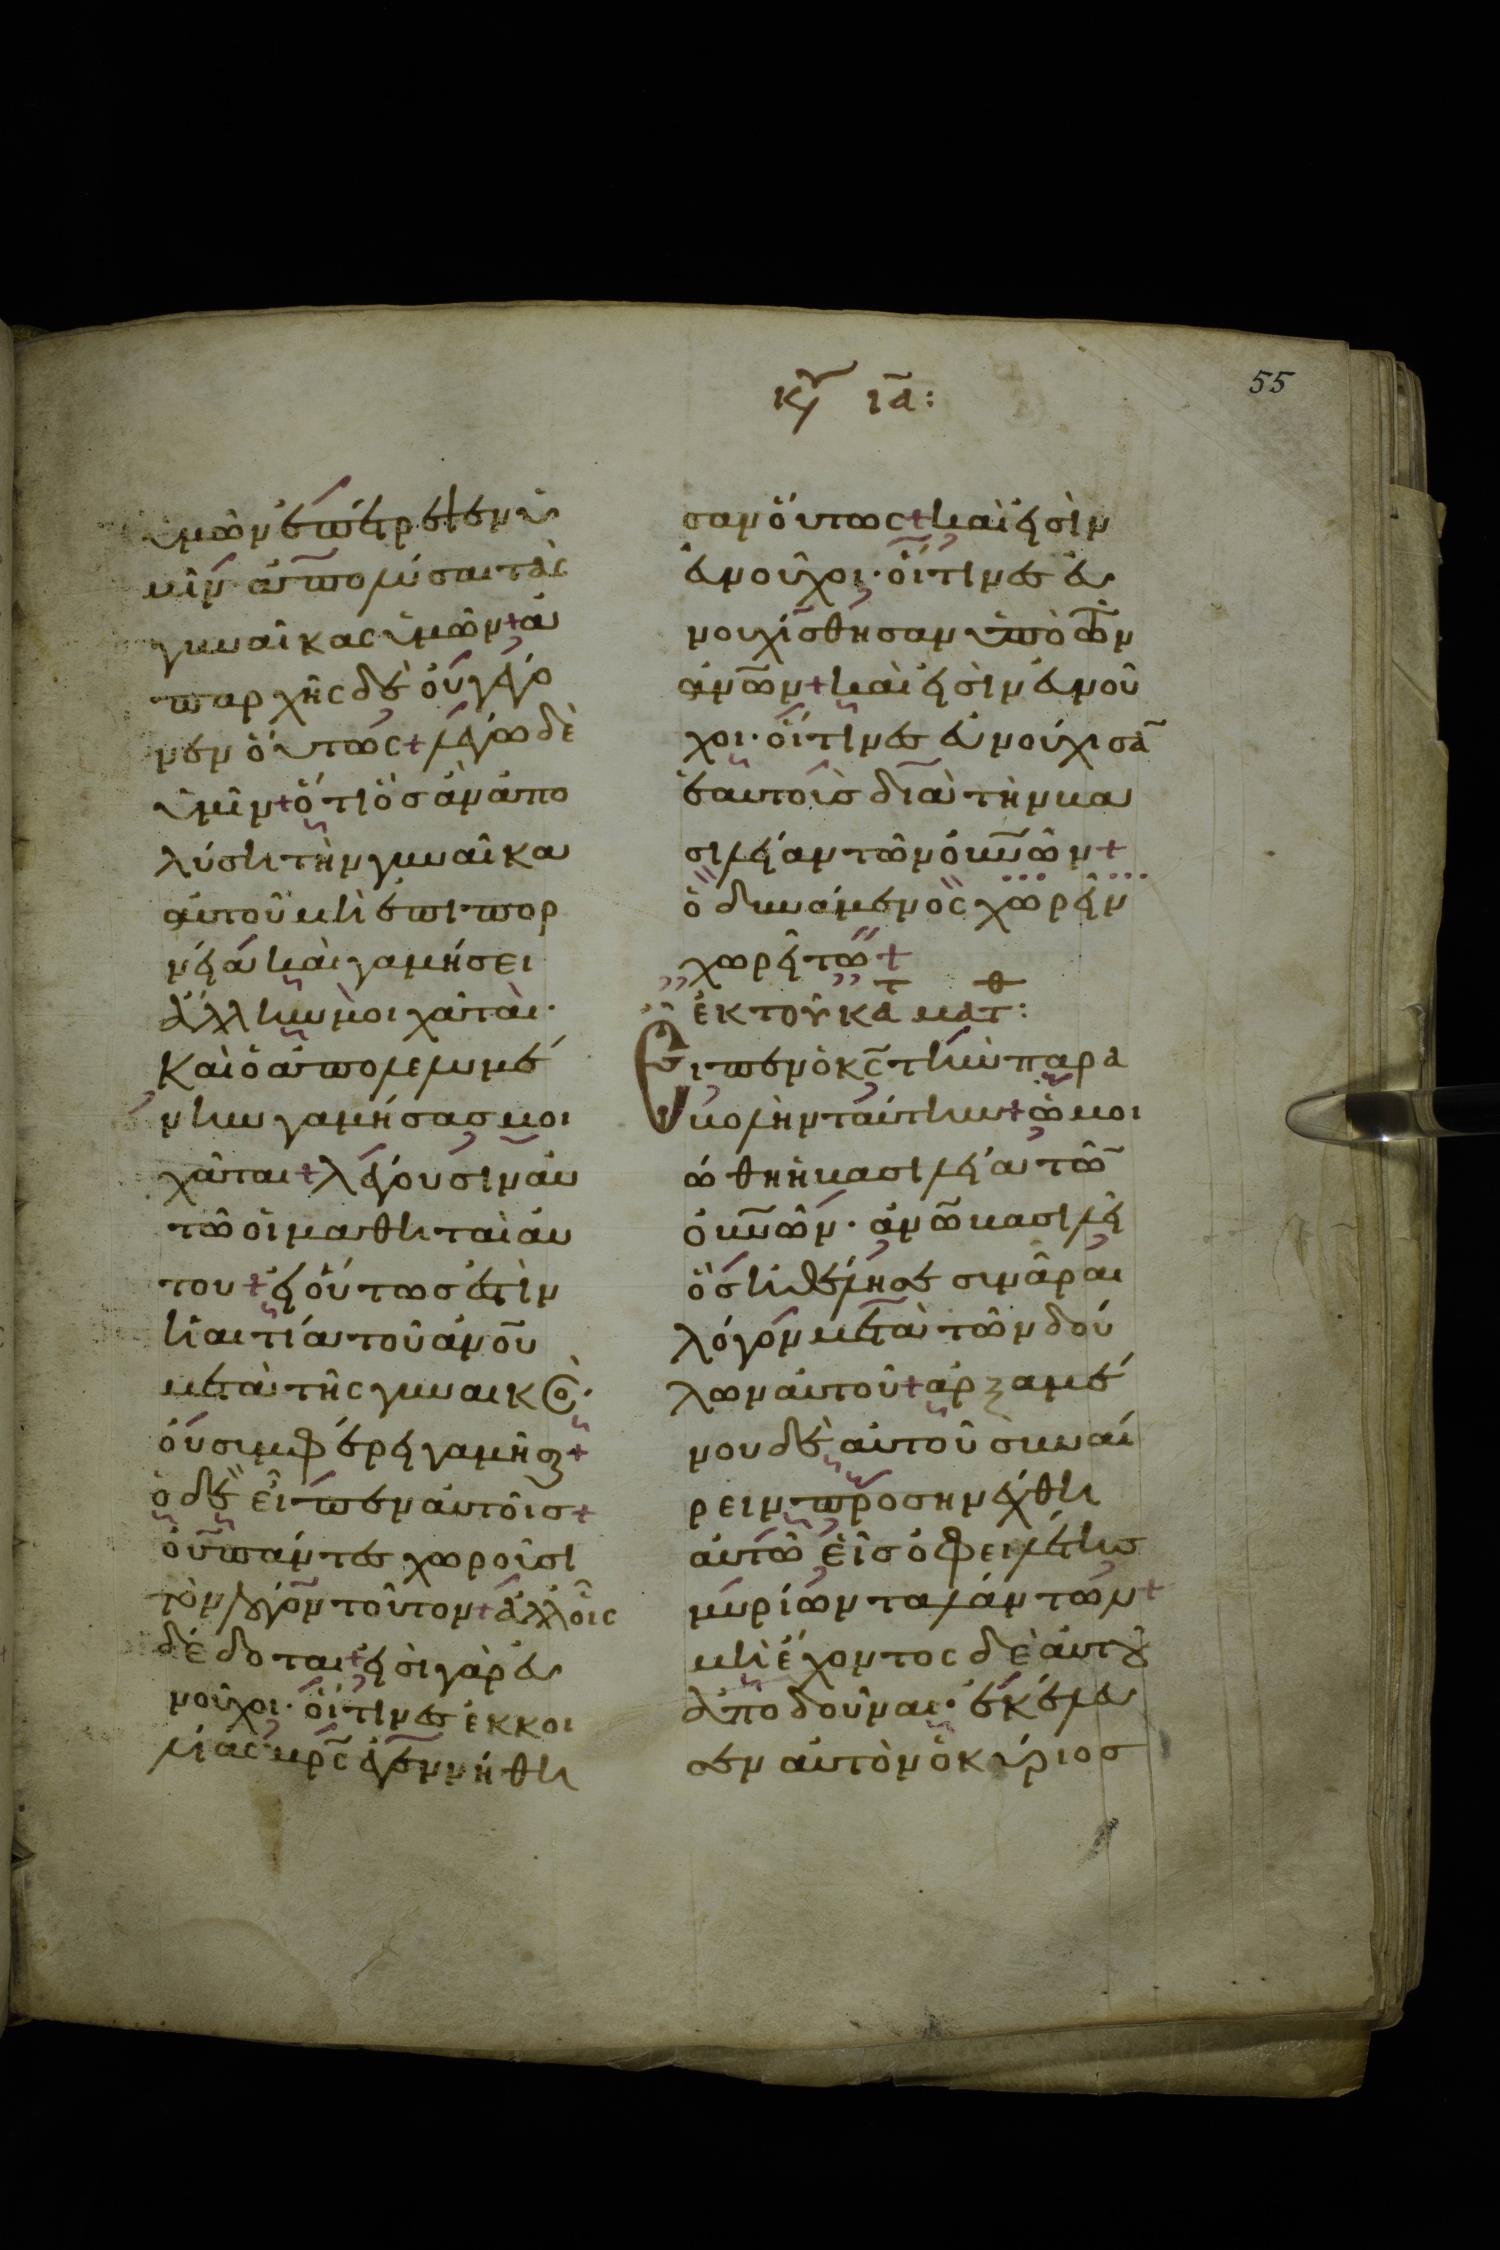 55
κυ ια:
ὑμῶν ἐπέτρεψεν ὑ
μῖν ἀπολύσαι τὰς
γυναῖκας ὑμῶν+ ἀ
παρχῆς δὲ οὐ γέγο
νεν ὅυτως+ λέγω δὲ
ὑμῖν+ ὅτι ὃς ἂν ἀπο
λύση τὴν γυναῖκα
αὐτοῦ μὴ ἐπι πορ
νεία καὶ γαμήσει
ἄλλην μοιχᾶται·
Καὶ ὁ ἀπολελυμέ
νην γαμήσας μοι
χᾶται+ λέγουσιν αὐ
τῶ οἱ μαθηταὶ αὐ
του+ εἰ ὅυτως ἐστὶν
ἡ αἰτία τοῦ ἀνου
μετὰ τῆς γυναικὸς·
ὀυ σιμφέρει γαμῆσαι+
ὁ δὲ εἶπεν αὐτοῖς+
ὀυ πάντες χωροῦσι
τὸν λόγον τοῦτον+ ἀλλ οἷς
δέδοται+ εἰσὶ γὰρ ἐυ
νοῦχοι· ὅιτινες ἐκ κοι
λίας μρς ἐγεννήθη
σαν ὅυτως+ καὶ εἰσὶν
ἐυνοῦχοι· ὅιτινες ἐυ
νουχίσθησαν ὑπὸ τῶν
ἀνων+ καὶ εἰσὶν ἐυνοῦ
χοι· ὅιτινες ἐυνούχισα
ἑαυτοῖς διὰ τὴν βα
σιλείαν τῶν ὀυνῶν+
ὁ δυνάμενος χωρεῖν
χωρείτω+
ἐκ τοῦ κατ ματθ:
Ειπεν ὁ κς τὴν παρα
βολὴν ταύτην+ ὡμοι
ώθη ἡ βασιλεία τῶ
ὀυνῶν· ἀνω βασιλεῖ
ὃς ἠθέλησε σινᾶραι
λόγον μετὰ τῶν δού
λων αὐτοῦ+ ἀρξαμέ
νου δὲ αὐτοῦ σιναί
ρειν προσηνέχθη
αὐτῶ εἷς ὀφειλέτης
μυρίων ταλάντων+
μὴ ἔχοντος δὲ αὐτου
ἀποδοῦναι· ἐκέλευ
σεν αὐτὸν ὁ κύριος